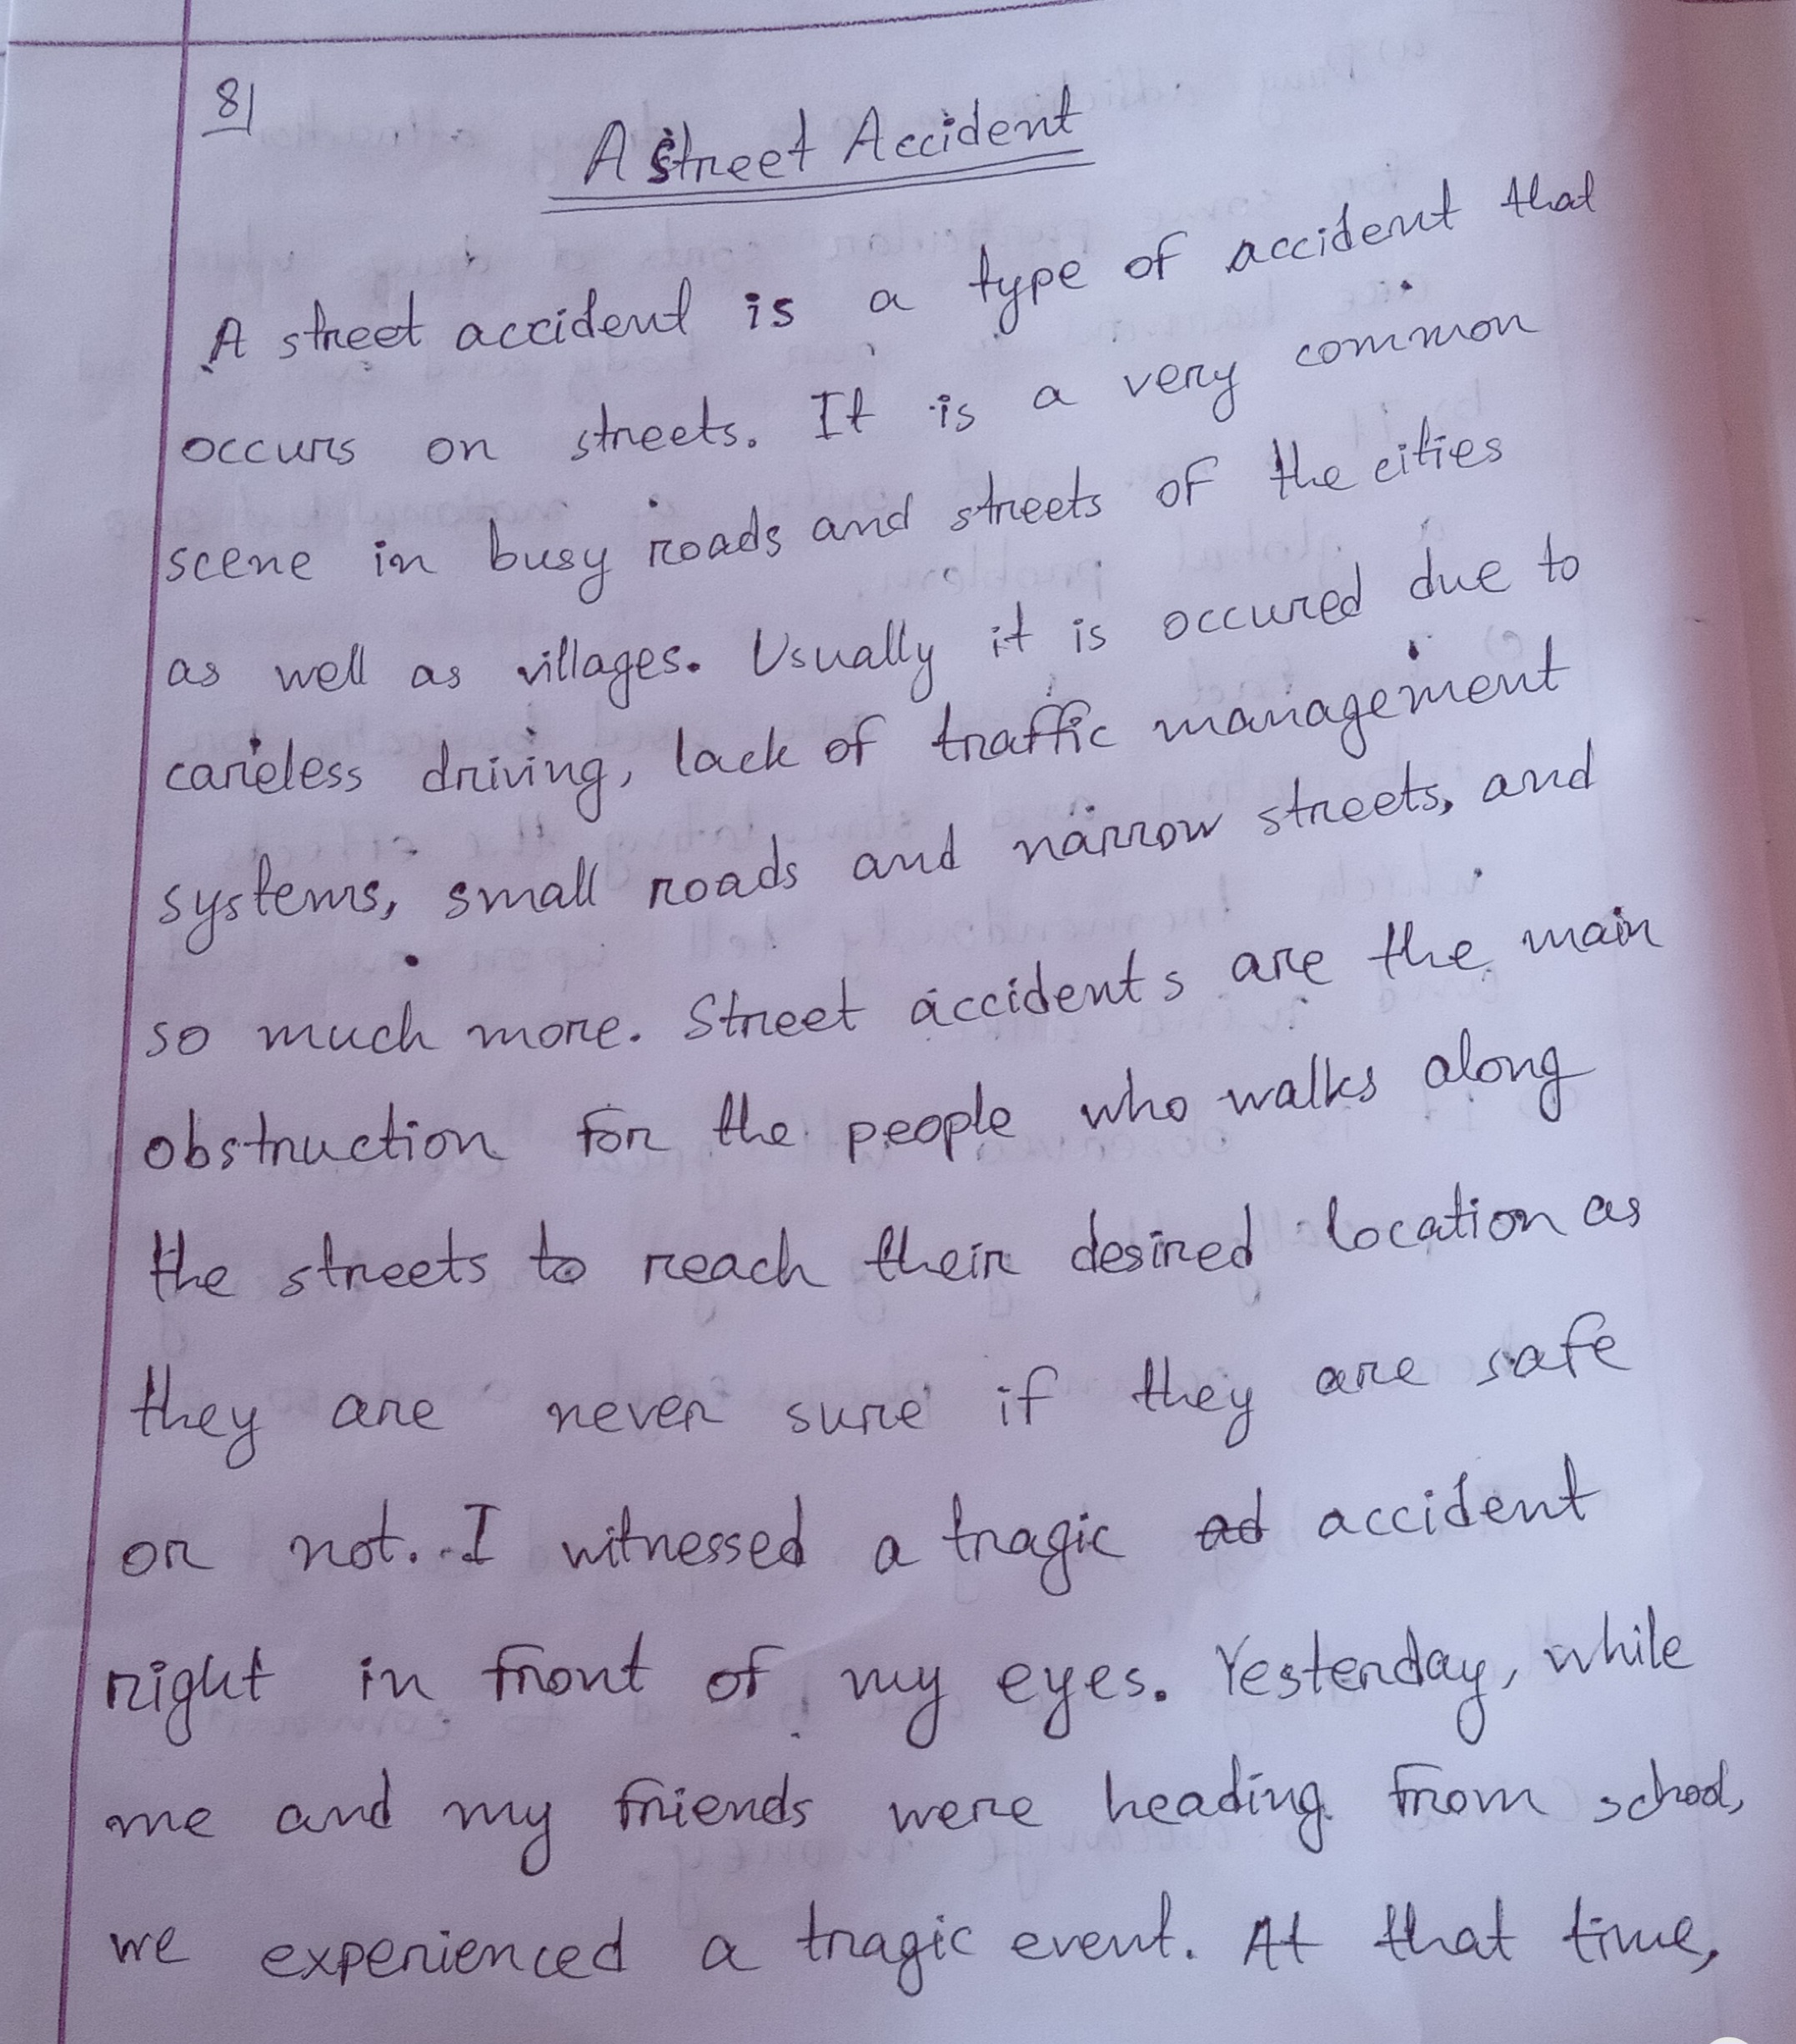 8|
A Street Accident
A street accident is a type of accident that
occurs on streets. It is a very common
scene in busy roads and streets of the cities
as well as villages. Usually it is occured due to
careless driving, lack of traffic management
systems, small roads and narrow streets, and
so much more. Street accidents are the main
obstruction for the people who walks along
the streets to reach their desired location as
they are never sure if they are safe
or not. I witnessed a tragic ad accident
right in front of my eyes. Yesterday, while
me and my friends were heading from school,
we experienced a tragic event. At that time,